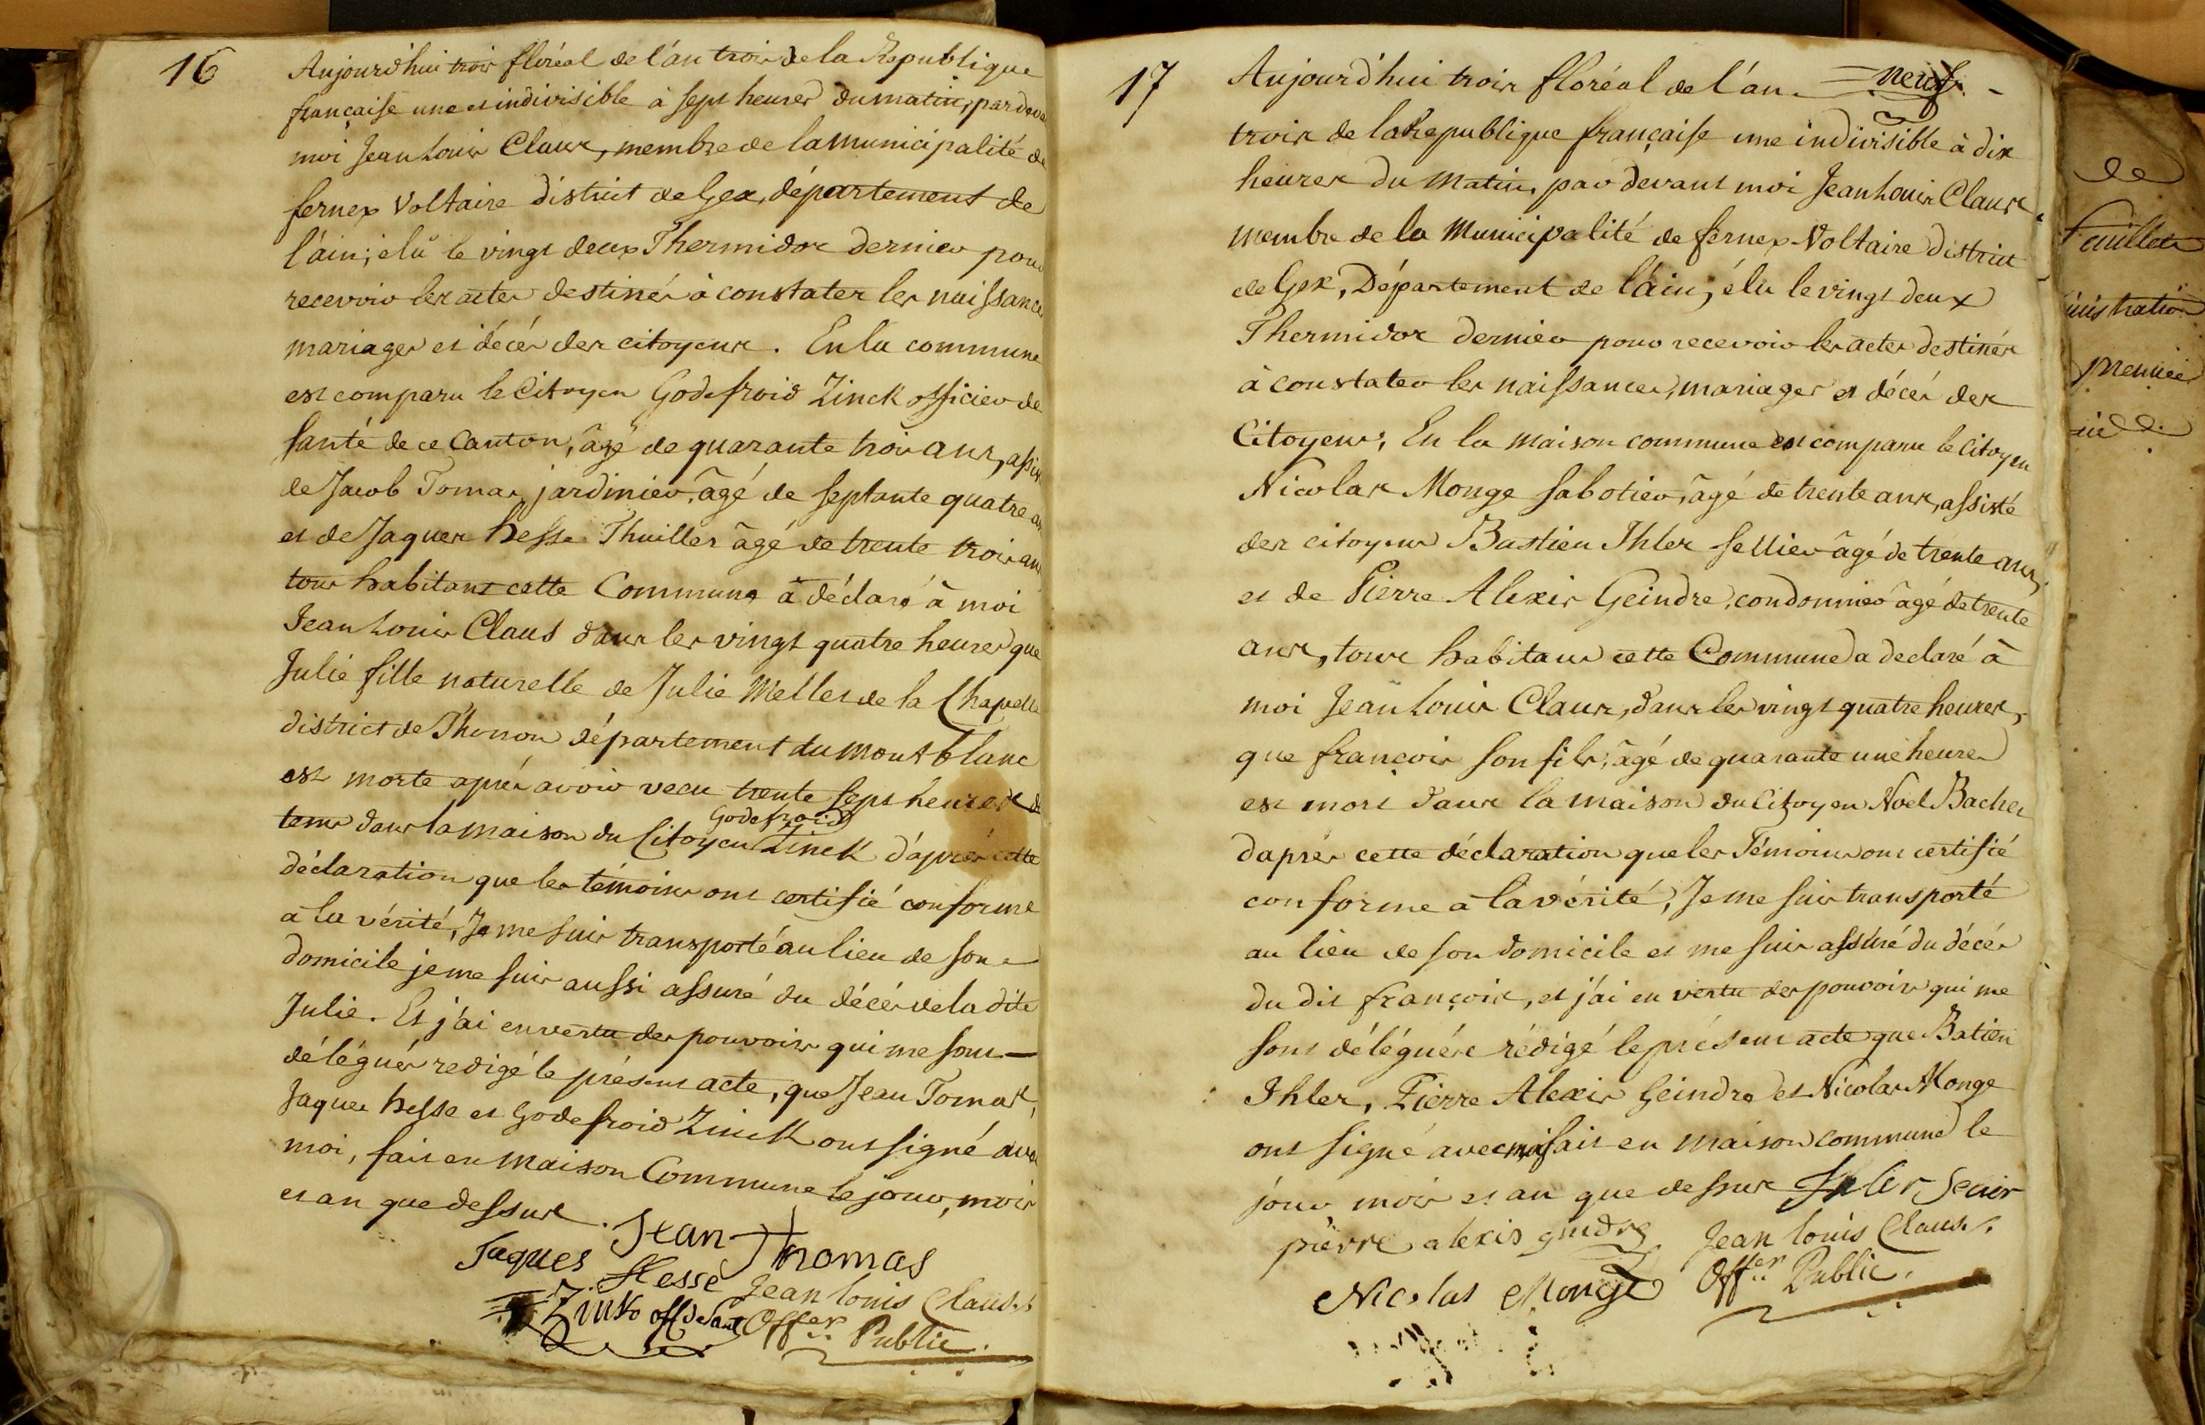 16
Aujourd'hui trois floréal de l'an trois de la Republique
française une et indivisible à sept heures du matin, par deva
moi Jean Louis Claus, membre de la municipalité de
fernex Voltaire district de Gex, département de
l'ain; élu le vingt deux Thermidor dernier pour
recevoir les actes destinés à constater les naissances
mariages et décès des citoyens. En la commune
est comparu le Citoyen Godefroid Zinck officier de
santé de ce Canton, âgé de quarante trois ans, assis
de Jacob Tomas jardinier, âgé de septante quatre an
et de Jaques hesse Thuillier âgé de trente trois ans
tous habitans cette Commune à déclaré à moi
Jean Louis Claus dans les vingt quatre heures que
Julie fille naturelle de Julie Meller de la Chapelle
district de Thonon département du mont blanc
est morte après avoir vecu trente sept heures de
tems dans la maison du Citoyen Godefroid Zinck d'après cette
déclaration que les témoins ont certifié conforme
a la vérité, Je me suis transporté au lieu de son
domicile je me suis aussi assuré du décès de la dite
Julie. Et j'ai en vertu des pouvoirs qui me sont
délégués redigé le présent acte, que Jean Tomas,
Jaques hesse et Godefroid Zinck ont signé avec
moi, fait en maison Commune le jour, mois
et an que dessus.
Jean Thomas
Jaques Hesse
Jean louis Claus.
Zink off de santé
Offer Public.
17
Aujourd'hui trois floréal de l'an neuf
trois de la Republique française une indivisible à dix
heures du matin, par devant moi Jean Louis Claus
membre de la Municipalité de fernex-Voltaire district
de Gex, Département de l'ain, élu le vingt deux
Thermidor dernier pour recevoir les actes destinés
à constater les naissances, mariages et décès des
Citoyens; En la maison commune est comparu le Citoyen
Nicolas Monge sabotier, âgé de trente ans, assisté
des citoyens Bastien Ihler sellier âgé de trente ans,
et de Pierre Alexis Geindre, condonnier âgé de trente
ans, tous habitans cette Commune a declaré à
moi Jean Louis Claus, dans les vingt quatre heures,
que françois son fils, âgé de quarante une heures
est mort dans la maison du Citoyen Noel Bacher
d'après cette déclaration que les Témoins ont certifié
conforme a la vérité, Je me suis transporté
au lieu de son domicile et me suis assuré du décès
du dit françois, et j'ai en vertu des pouvoirs qui me
sont délégués rédigé le présent acte que Batien
Ihler, Pierre Alexis Geindre et Nicolas Monge
ont signé avec moi fait en maison commune le
jour mois et an que dessus Ihler
pierre alexis gindre Jean louis Claus.
Nicolas Monge Offer Public.
de
feuillets
premier